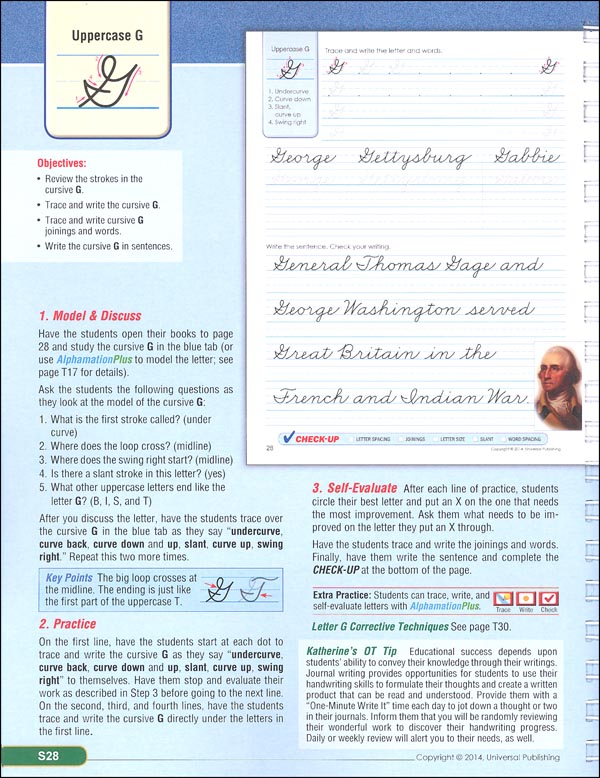 Uppercase G
G
Objectives:
• Review the strokes in the
cursive G.
• Trace and write the cursive G.
• Trace and write cursive G
joinings and words.
• Write the cursive G in sentences.
1. Model & Discuss
Have the students open their books to page
28 and study the cursive G in the blue tab (or
use AlphamationPlus to model the letter; see
page T17 for details).
Ask the students the following questions as
they look at the model of the cursive G:
1. What is the first stroke called? (under
curve)
2. Where does the loop cross? (midline)
3. Where does the swing right start? (midline)
4. Is there a slant stroke in this letter? (yes)
5. What other uppercase letters end like the
letter G? (B, I, S, and T)
After you discuss the letter, have the students trace over
the cursive G in the blue tab as they say “undercurve,
curve back, curve down and up, slant, curve up, swing
right.” Repeat this two more times.
Key Points The big loop crosses at
the midline. The ending is just like
the first part of the uppercase T.
G T
2. Practice
On the first line, have the students start at each dot to
trace and write the cursive G as they say “undercurve,
curve back, curve down and up, slant, curve up, swing
right” to themselves. Have them stop and evaluate their
work as described in Step 3 before going to the next line.
On the second, third, and fourth lines, have the students
trace and write the cursive G directly under the letters in
the first line.
S28
Uppercase G
G
1. Undercurve
2. Curve down
3. Slant,
curve up
4. Swing right
Trace and write the letter and words.
G G G G
George Gettysburg Gabbie
Write the sentence. Check your writing.
General Thomas Gage and
George Washington served
Great Britain in the
French and Indian War.
CHECK-UP LETTER SPACING JOININGS LETTER SIZE SLANT WORD SPACING
28
Copyright © 2014, Universal Publishing
3. Self-Evaluate After each line of practice, students
circle their best letter and put an X on the one that needs
the most improvement. Ask them what needs to be im-
proved on the letter they put an X through.
Have the students trace and write the joinings and words.
Finally, have them write the sentence and complete the
CHECK-UP at the bottom of the page.
Extra Practice: Students can trace, write, and
self-evaluate letters with AlphamationPlus.
Trace Write Check
Letter G Corrective Techniques See page T30.
Katherine's OT Tip Educational success depends upon
students’ ability to convey their knowledge through their writings.
Journal writing provides opportunities for students to use their
handwriting skills to formulate their thoughts and create a written
product that can be read and understood. Provide them with a
“One-Minute Write It” time each day to jot down a thought or two
in their journals. Inform them that you will be randomly reviewing
their wonderful work to discover their handwriting progress.
Daily or weekly review will alert you to their needs, as well.
Copyright © 2014, Universal Publishing